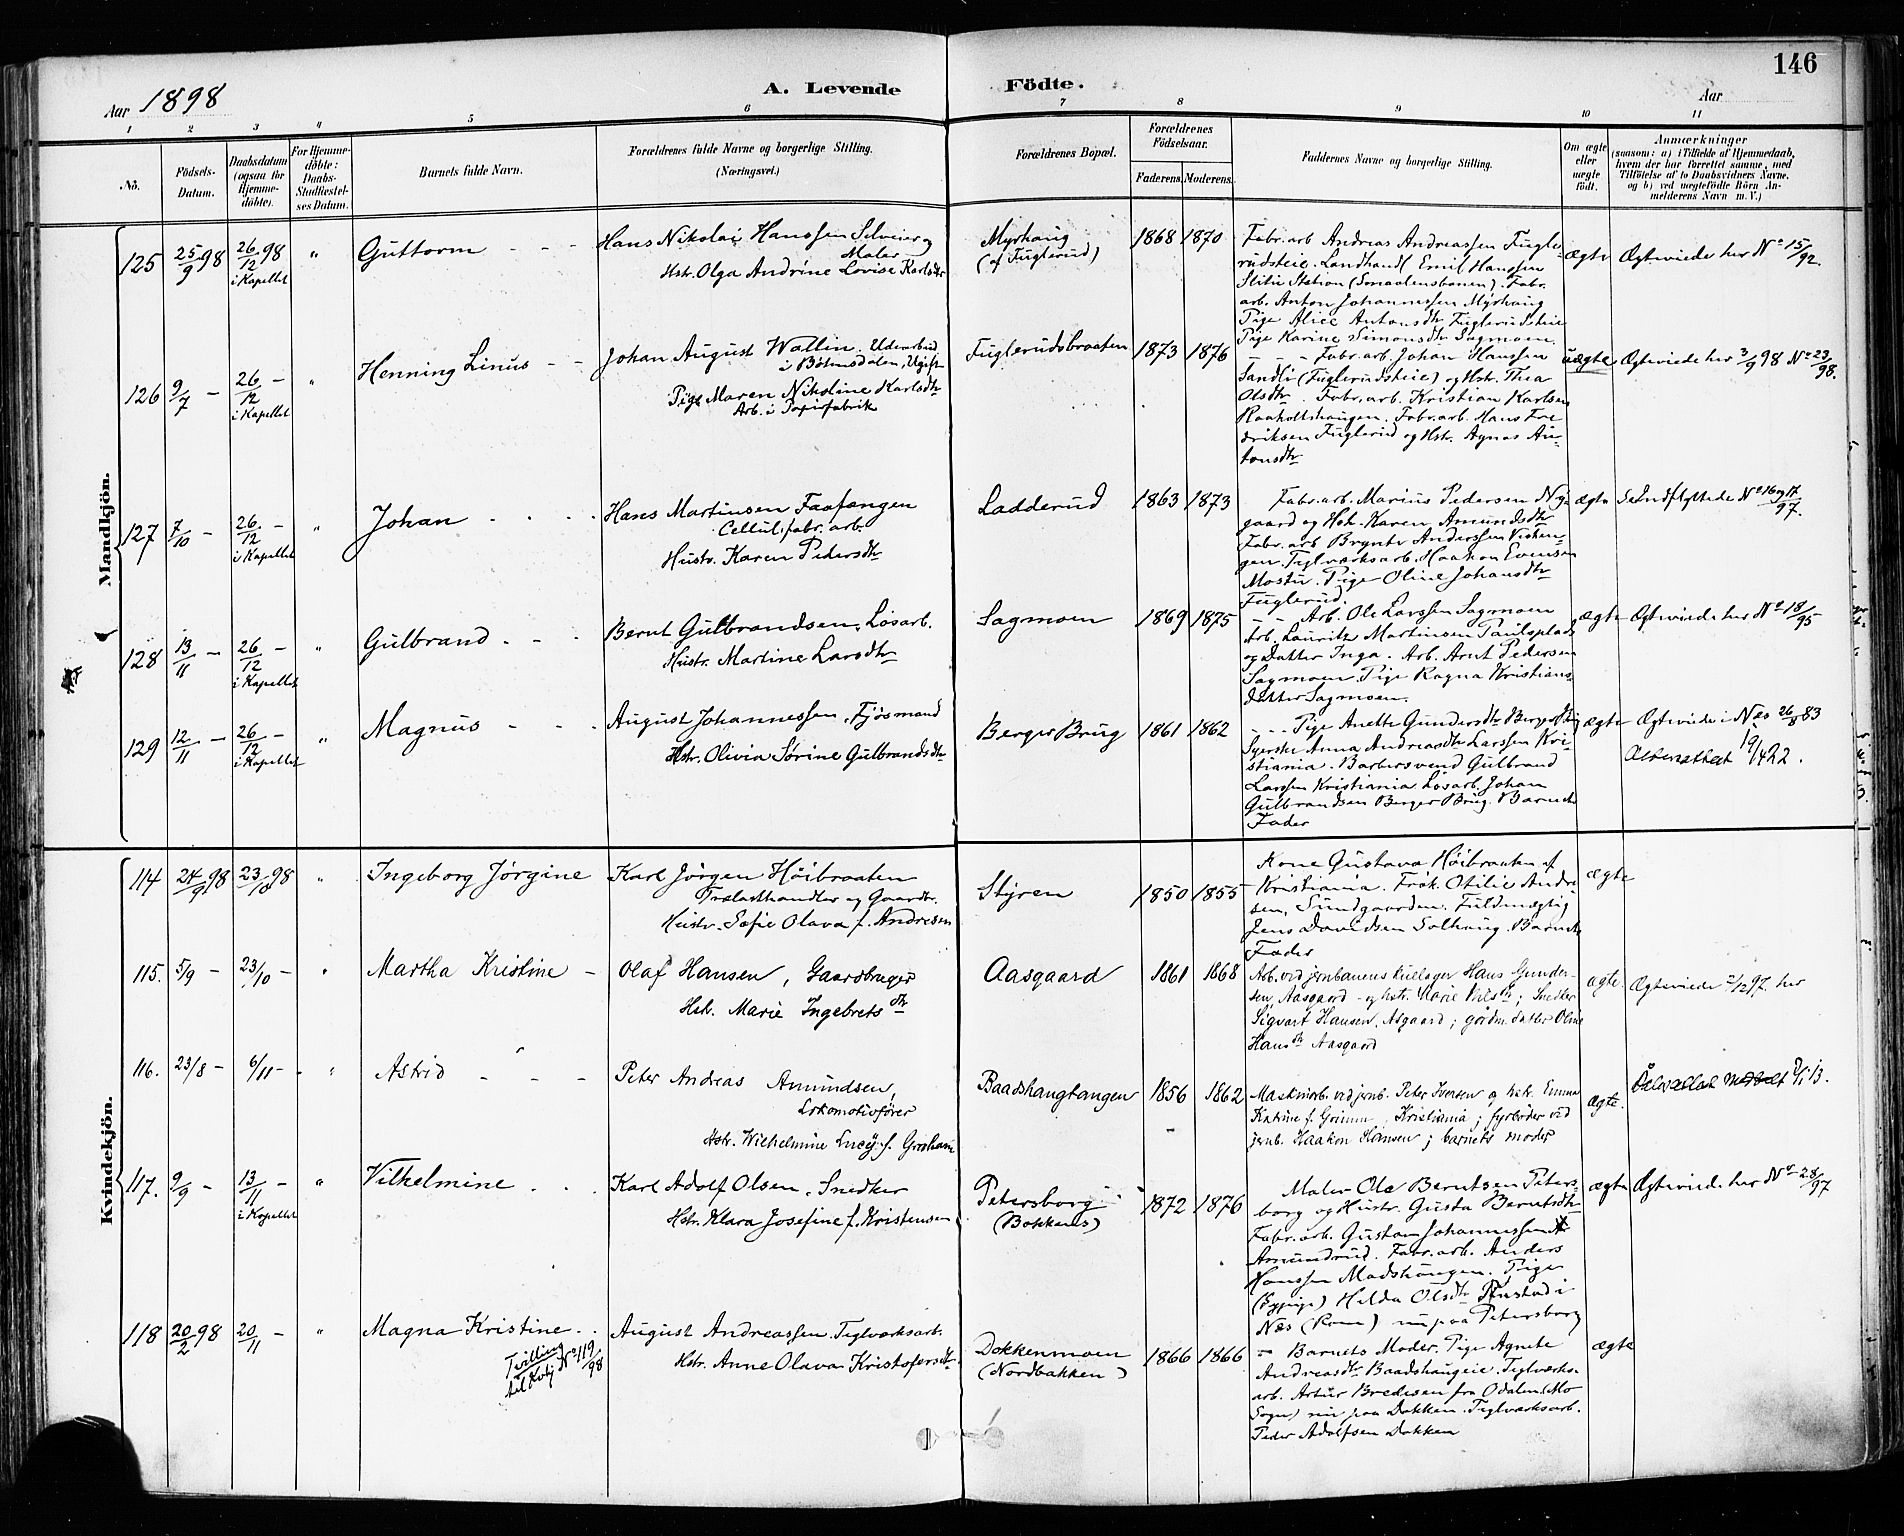 146
Aar 1898
A. Levende Födte.
Aar
1 2 3 4 5 6 7 8 9 10 11
No.
Födsels-Datum.
Daabsdatum (ogsaa for Hjemme-döbte).
For Hjemme-döbte: Daabs-Stadfæstel-ses Datum.
Barnets fulde Navn.
Forældrenes fulde Navne og borgerlige Stilling. (Næringsvei.)
Forældrenes Bopæl.
Forældrenes Födselsaar.
Faderens. Moderens.
Faddernes Navne og borgerlige Stilling.
Om ægte eller uægte födt.
Anmærkninger
(saasom: a) i Tilfælde af Hjemmedaab, hvem der har forrettet samme, med Tilföielse af to Daabsvidners Navne, og b) ved uægtefödte Börn Anmelderens Navn m. V.)
Mandkjön.
125 25/9 98 26/12 98 i Kapellet " Guttorm - - -
Hans Nikolai Hanssen Selveier og Maler
Hstr. Olga Andrine Lovise Karlsdtr
Myrhaug (af Fuglerud) 1868 1870
Fabr.arb Andreas Andreassen Fugle-
rudsteie. Landhandl Emil Hanssen
Slitu Station (Smaalensbanen). Fabr.
arb. Anton Johannessen Myrhaug
Pige Alice Antonsdtr Fuglerudsteie
Pige Karine Simonsdtr Sagmoen.
ægte Ægteviede her No 15/92.
126 9/7 - 26/12 - i Kapellet " Henning Linus - -
Johan August Wallin. Udearbeid
i Bøhnsdalen, Ugift
Pige Maren Nikoline Karlsdtr
Arb. i Papirfabrik
Fuglerudsbraaten 1873 1876
- - - Fabr.arb. Johan Hanssen
Sandli (Fuglerudsteie) og Hstr. Thea
Olsdtr. Fabr.arb. Kristian Karlsen
Raaholtshaugen. Fabr.arb. Hans Fre
driksen Fuglerud og Hstr. Agnes An-
tonsdtr
uægte Ægteviede her 3/9 98 No 23/98.
127 7/10 - 26/12 - i Kapellet " Johan - - -
Hans Martinsen Fastangen
Cellul.fabr. arb.
Hustr. Karen Pedersdtr
Ladderud 1863 1873
Fabr.arb. Marius Pedersen Ny-
gaard og Hstr. Karen Amundsdtr
Fabr.arb Brynte Anderssen
gen. Teglværksarb. Haakon Evensen
Mostu. Pige Oline Johansdtr
Fuglerud.
ægte Se Indflyttede No 16 og 17/97.
128 13/11 - 26/12 - i Kapellet " Gulbrand - - -
Bernt Gulbrandsen, Løsarb.
Hustr. Martine Larsdtr
Sagmoen 1869 1875
- - Arb. Ole Larssen Sagmoen
Arb. Lauritz Martinsen Paulsplads
og Datter Inga. Arb. Arnt Pedersen
Sagmoen. Pige Ragna Kristians-
datter Sagmoen.
ægte Ægteviede her No 18/95
129 12/11 - 26/12 - i Kapellet " Magnus - - -
August Johannessen, Fjøsmand
Hstr. Olivia Sørine Gulbrandsdtr
Berger Brug 1861 1862
- - Pige Anette Gundersdtr Berger Brug
Syerske Anna Andreasdtr Larssen Kri-
stiania. Barbersvend Gulbrand
Larssen Kristiania Løsarb. Johan
Gulbrandsen Berger Brug. Barnets
Fader
ægte Ægteviede i Næs 26/8 83
Aldersattest 19/1422.
Kvindekjön.
114 24/9 98 23/10 98 " Ingeborg Jørgine
Karl Jørgen Høibraaten
Trælasthandler og Gaardbr.
Hustr. Sofie Olava f. Andresen
Styren 1850 1855
Kone Gustava Høibraaten af
Kristiania. Frøk. Otilie Andre
sen, Sundgaarden. Fuldmægtig
Jens Davidsen Solhaug. Barnets
Fader
ægte
115. 5/9 - 23/10 - " Martha Kristine -
Olaf Hansen, Gaardbruger
Hstr. Marie Ingebretsdtr
Aasgaard 1861 1868
Arb. ved jernbanens kullager Hans Gunder-
sen, Aasgaard - og hstr. Marie Nilsdtr; Snedker
Sigvart Hansen, Asgaard; gårdm. datter Oline
Hansdtr Aasgaard
ægte. Ægteviede 2/12 97. her
116. 23/8 - 6/11 - " Astrid - - -
Peter Andreas Amundsen,
Lokomotivfører
Hstr. Wilhelmine Lucy f. Graham
Baadshaugtangen 1856 1862
Maskinarb. ved jernb. Peter Iversen og hstr. Emma
Katrine f. Grimm, Kristiania; fyrbøder ved
jernb. Haakon Hansen; barnets moder
ægte. 13.
117. 9/9 - 13/11 - i Kapellet " Vilhelmine . . .
Karl Adolf Olsen, Snedker
Hstr. Klara Josefine f. Kristensen
Petersborg (Bakkens) 1872 1876
Maler Ole Berntsen Peters-
borg og Hustr. Gusta Berntsdtr
Fabr.arb. Gustav Johannessen
Amundrud. Fabr.arb. Anders
Hanssen Madshaugen. Pige
Hilda Olsdtr i
Næs nu paa Petersborg
ægte Ægteviede her No 28/97
118 20/2 98 20/11 - " Magna Kristine . .
Tvilling til Kvkj No 119/98
August Andreassen. Teglværksarb.
Hstr. Anne Olava Kristofersdtr
Dokkenmoen (Nordbakken) 1866 1866
- Barnets Moder. Pige Agnete
Andreasdtr Baadshaugeie. Teglværks-
arb. Artur Bredesen fra Odalen (Mo
Sogn) nu paa Dokken. Teglværksarb.
Peder Adolfsen Dokken
ægte